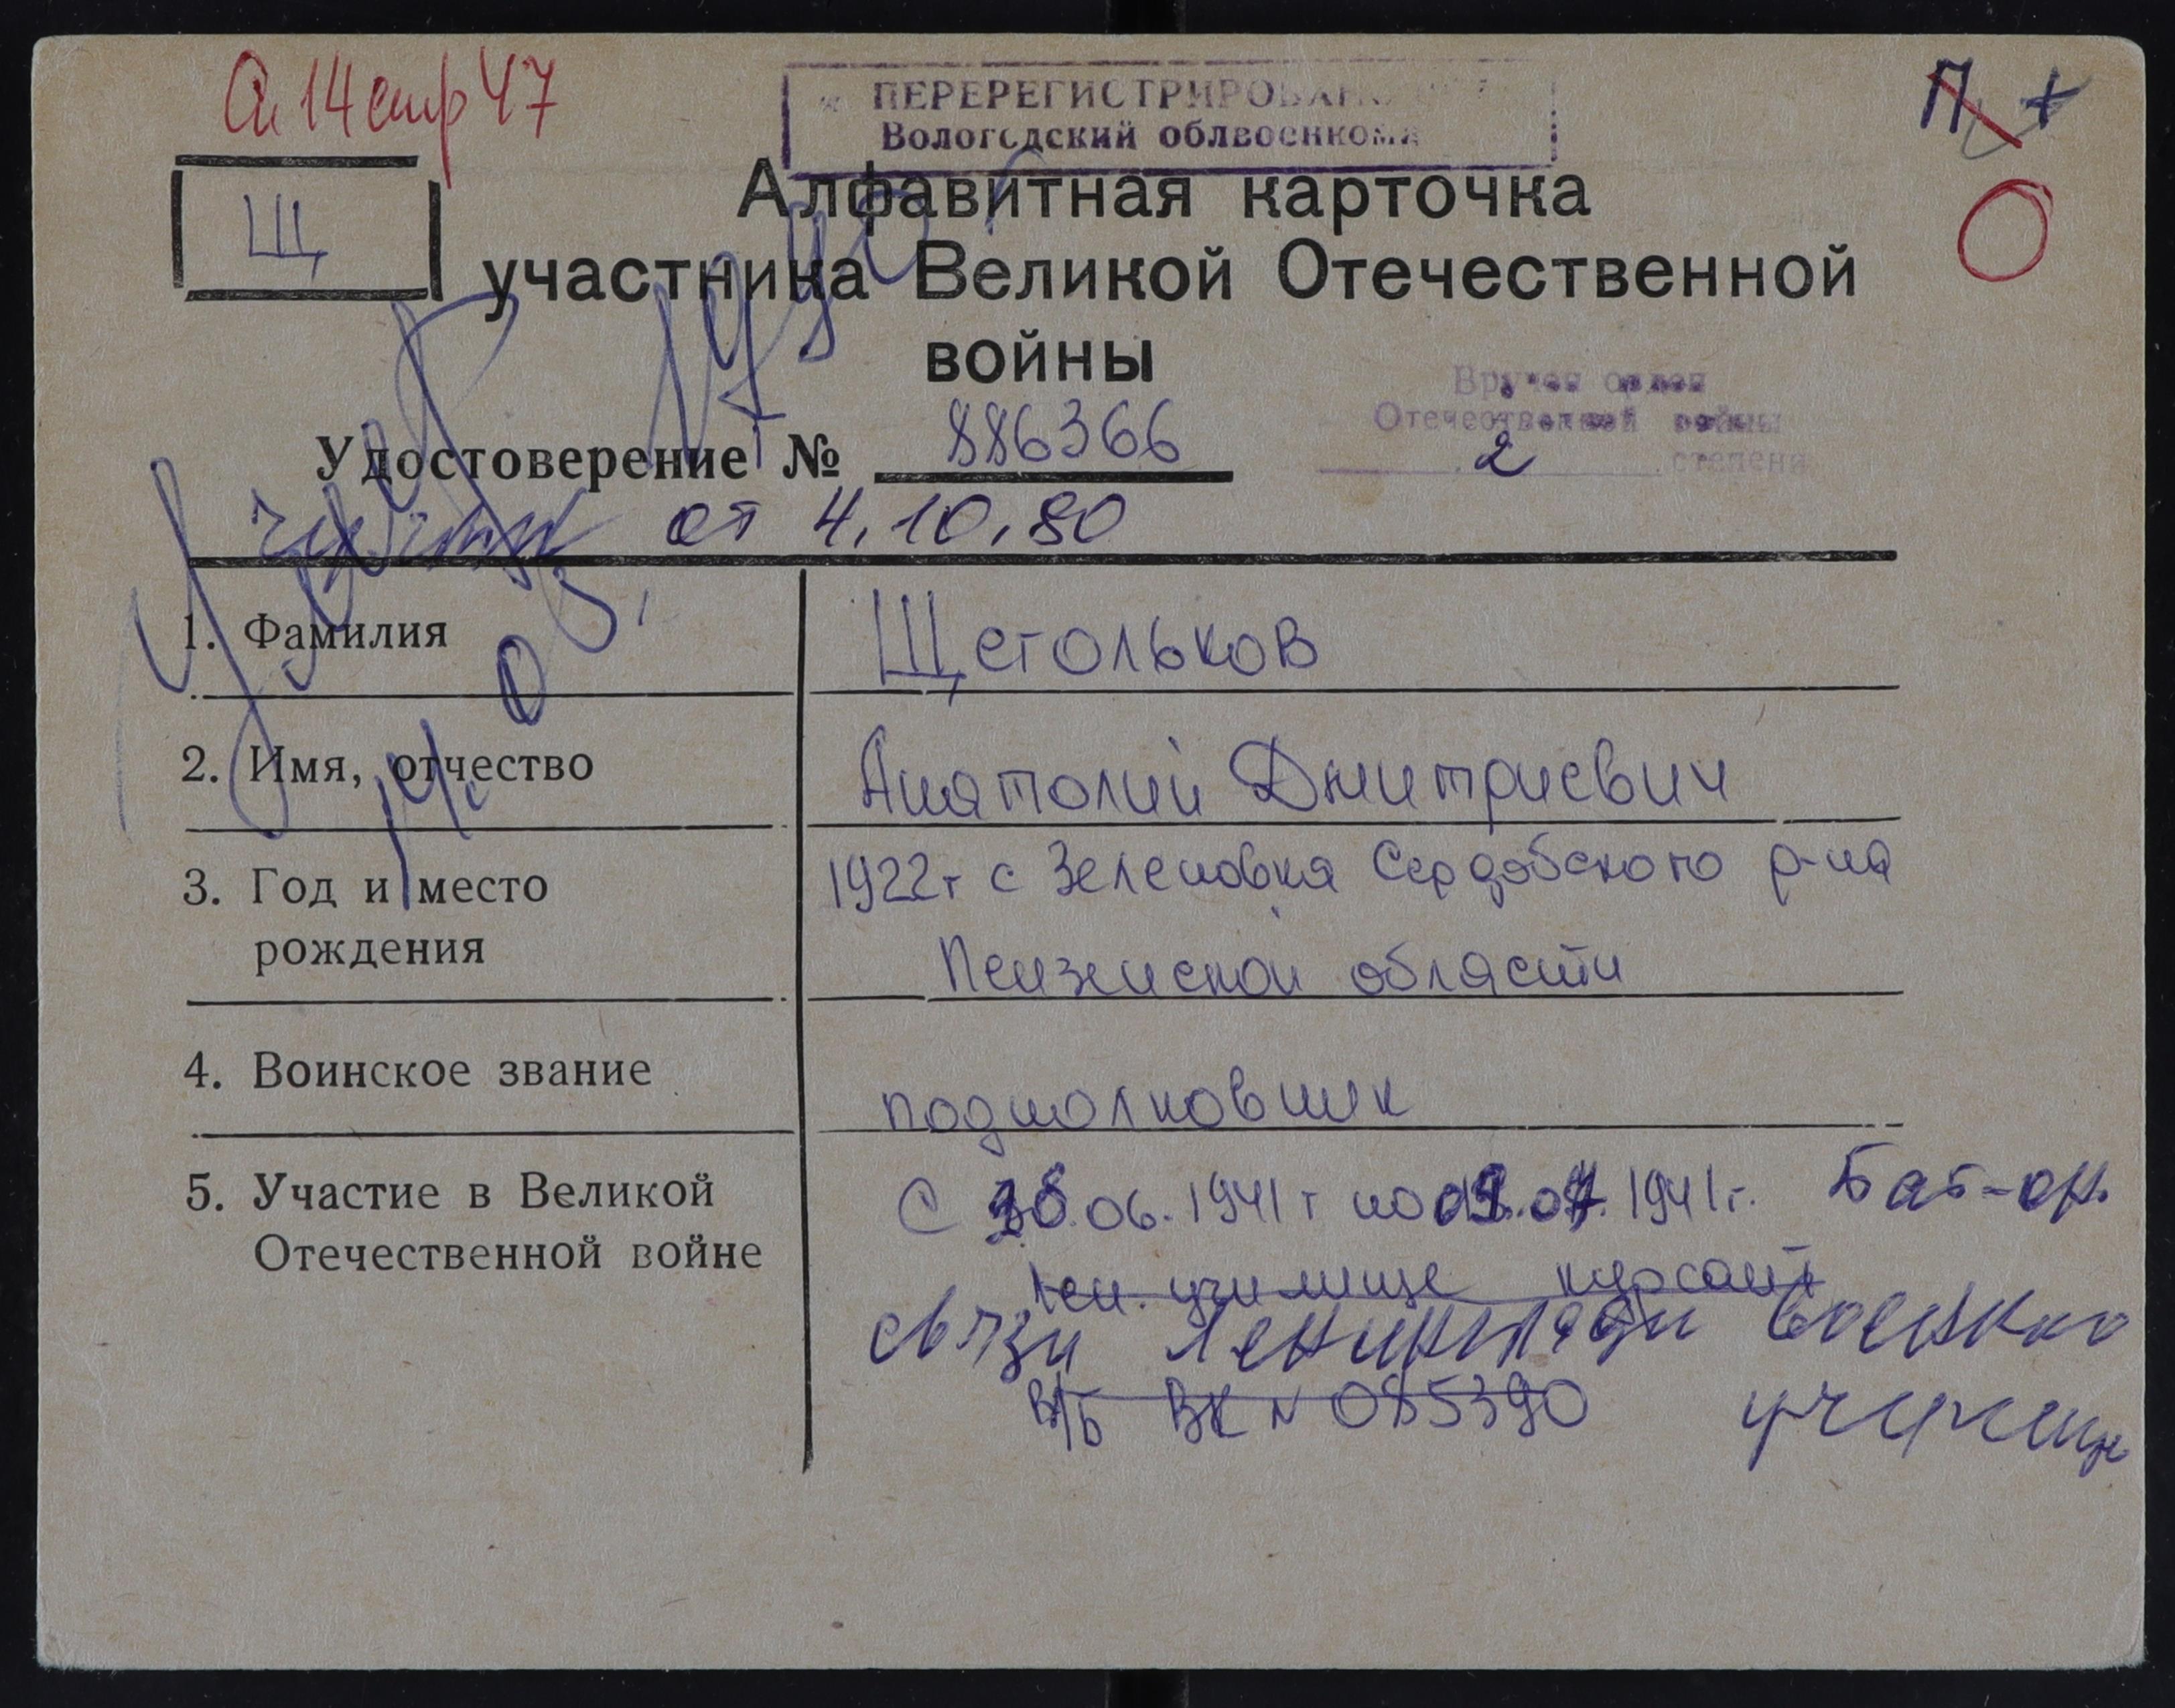 Сп 14 стр 47
ПЕРЕРЕГИСТРИРОВАН
Вологодский облвоенкома
П +
Щ
Алфавитная карточка
участника Великой Отечественной
войны
Вручен орден
Отечественной войны
2 степени
Удостоверение № 886366
от 4.10.80
1. Фамилия
Щегольков
2. Имя, отчество
Анатолий Дмитриевич
3. Год и место
рождения
1922г с Зеленовка Сердобского р-на
Пензенской области
4. Воинское звание
подполковник
5. Участие в Великой
Отечественной войне
С 06.1941г по 1941г. Бат-он
Лен. училище курсант
связи Ленинград военно
В/б ВК № 085390
училищ